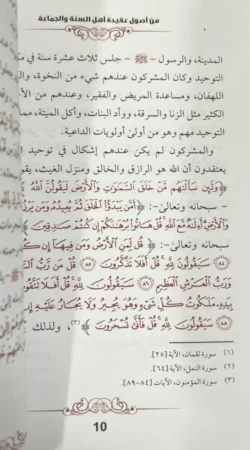 من أصول عقيدة أهل السنة والجماعة
المدينة، والرسول - ﷺ - جلس ثلاث عشرة سنة في
التوحيد وكان المشركون عندهم شيء من النخوة، و
اللهفان، ومساعدة المريض والفقير، وعندهم من الأ
الكثير مثل الزنا والسرقة، ووأد البنات، وأكل الميتة،
التوحيد مهم وهو من أولى أولويات الداعية.
والمشركون لم يكن عندهم إشكال في توحيد
يعتقدون أن الله هو الرازق والخالق ومنزل الغيث،
﴿وَلَئِن سَأَلْتَهُم مَّنْ خَلَقَ السَّمَوَتِ وَالْأَرْضَ لَيَقُولُنَّ اللَّهُ
سبحانه وتعالى-: ﴿أَمَّن يَبْدَؤُا الْخَلْقَ ثُمَّ يُعِيدُهُ وَمَن يَرْزُ
وَالْأَرْضِ أَءِلَهٌ مَّعَ اللَّهِ قُلْ هَاتُوا بُرْهَنَكُمْ إِن كُنتُمْ صَدِقِينَ
سبحانه وتعالى-: ﴿قُل لِّمَنِ الْأَرْضُ وَمَن فِيهَا إِن كُ
٨٤ سَيَقُولُونَ لِلَّهِ قُلْ أَفَلَا تَذَكَّرُونَ ٨٥ قُلْ مَن رَّبُّ ال
وَرَبُّ الْعَرْشِ الْعَظِيمِ ٨٦ سَيَقُولُونَ لِلَّهِ قُلْ أَفَلَا تَتَّقُو
بِيَدِهِ مَلَكُوتُ كُلِّ شَيْءٍ وَهُوَ يُجِيرُ وَلَا يُجَارُ عَلَيْهِ إِن
٨٨ سَيَقُولُونَ لِلَّهِ قُلْ فَأَنَّى تُسْحَرُونَ﴾ (٣)، ولذلك
(١) سورة لقمان، الآية [٢٥].
(٢) سورة النمل، الآية [٦٤].
(٣) سورة المؤمنون، الآيات [٨٤-٨٩].
10